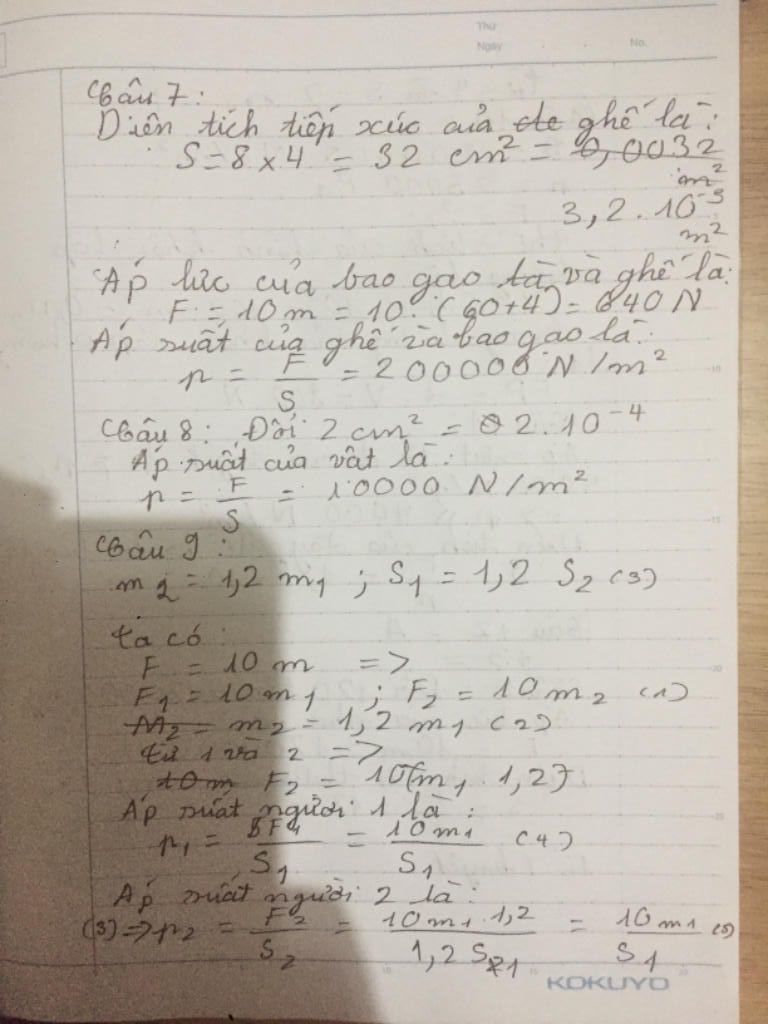 Thứ
Ngày No.
Câu 7:
Diện tích tiếp xúc của ghế là:
S = 8 x 4 = 32 cm² = 0,0032 m²
3,2.10⁻³ m²
Áp lực của bao gạo và ghế là:
F = 10m = 10.(60+4) = 640 N
Áp suất của ghế và bao gạo là:
p = F/S = 200000 N/m²
Câu 8: Đổi 2 cm² = 2.10⁻⁴
Áp suất của vật là:
p = F/S = 10000 N/m²
Câu 9:
m₂ = 1,2 m₁ ; S₁ = 1,2 S₂ (3)
ta có:
F = 10 m =>
F₁ = 10 m₁ ; F₂ = 10 m₂ (1)
M₂ = m₂ = 1,2 m₁ (2)
từ 1 và 2 =>
10 m F₂ = 10(m₁ . 1,2)
Áp suất người 1 là:
p₁ = F₁/S₁ = 10m₁/S₁ (4)
Áp suất người 2 là:
(3) => p₂ = F₂/S₂ = 10m₁.1,2/1,2 S₁ = 10m₁/S₁ (5)
KOKUYO